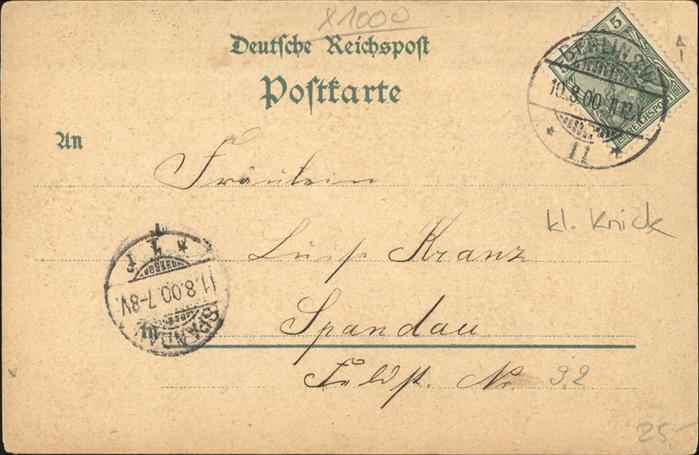 x1000
Deutsche Reichspost
Postkarte
5
BERLIN
REICHSPOST
10.8.00. 11-12
* 11 *
An
Fräulein
kl. Knick
Kranz
11.8.00. 7-8V.
SPANDAU
in Spandau
Feldst. No 32
25,-